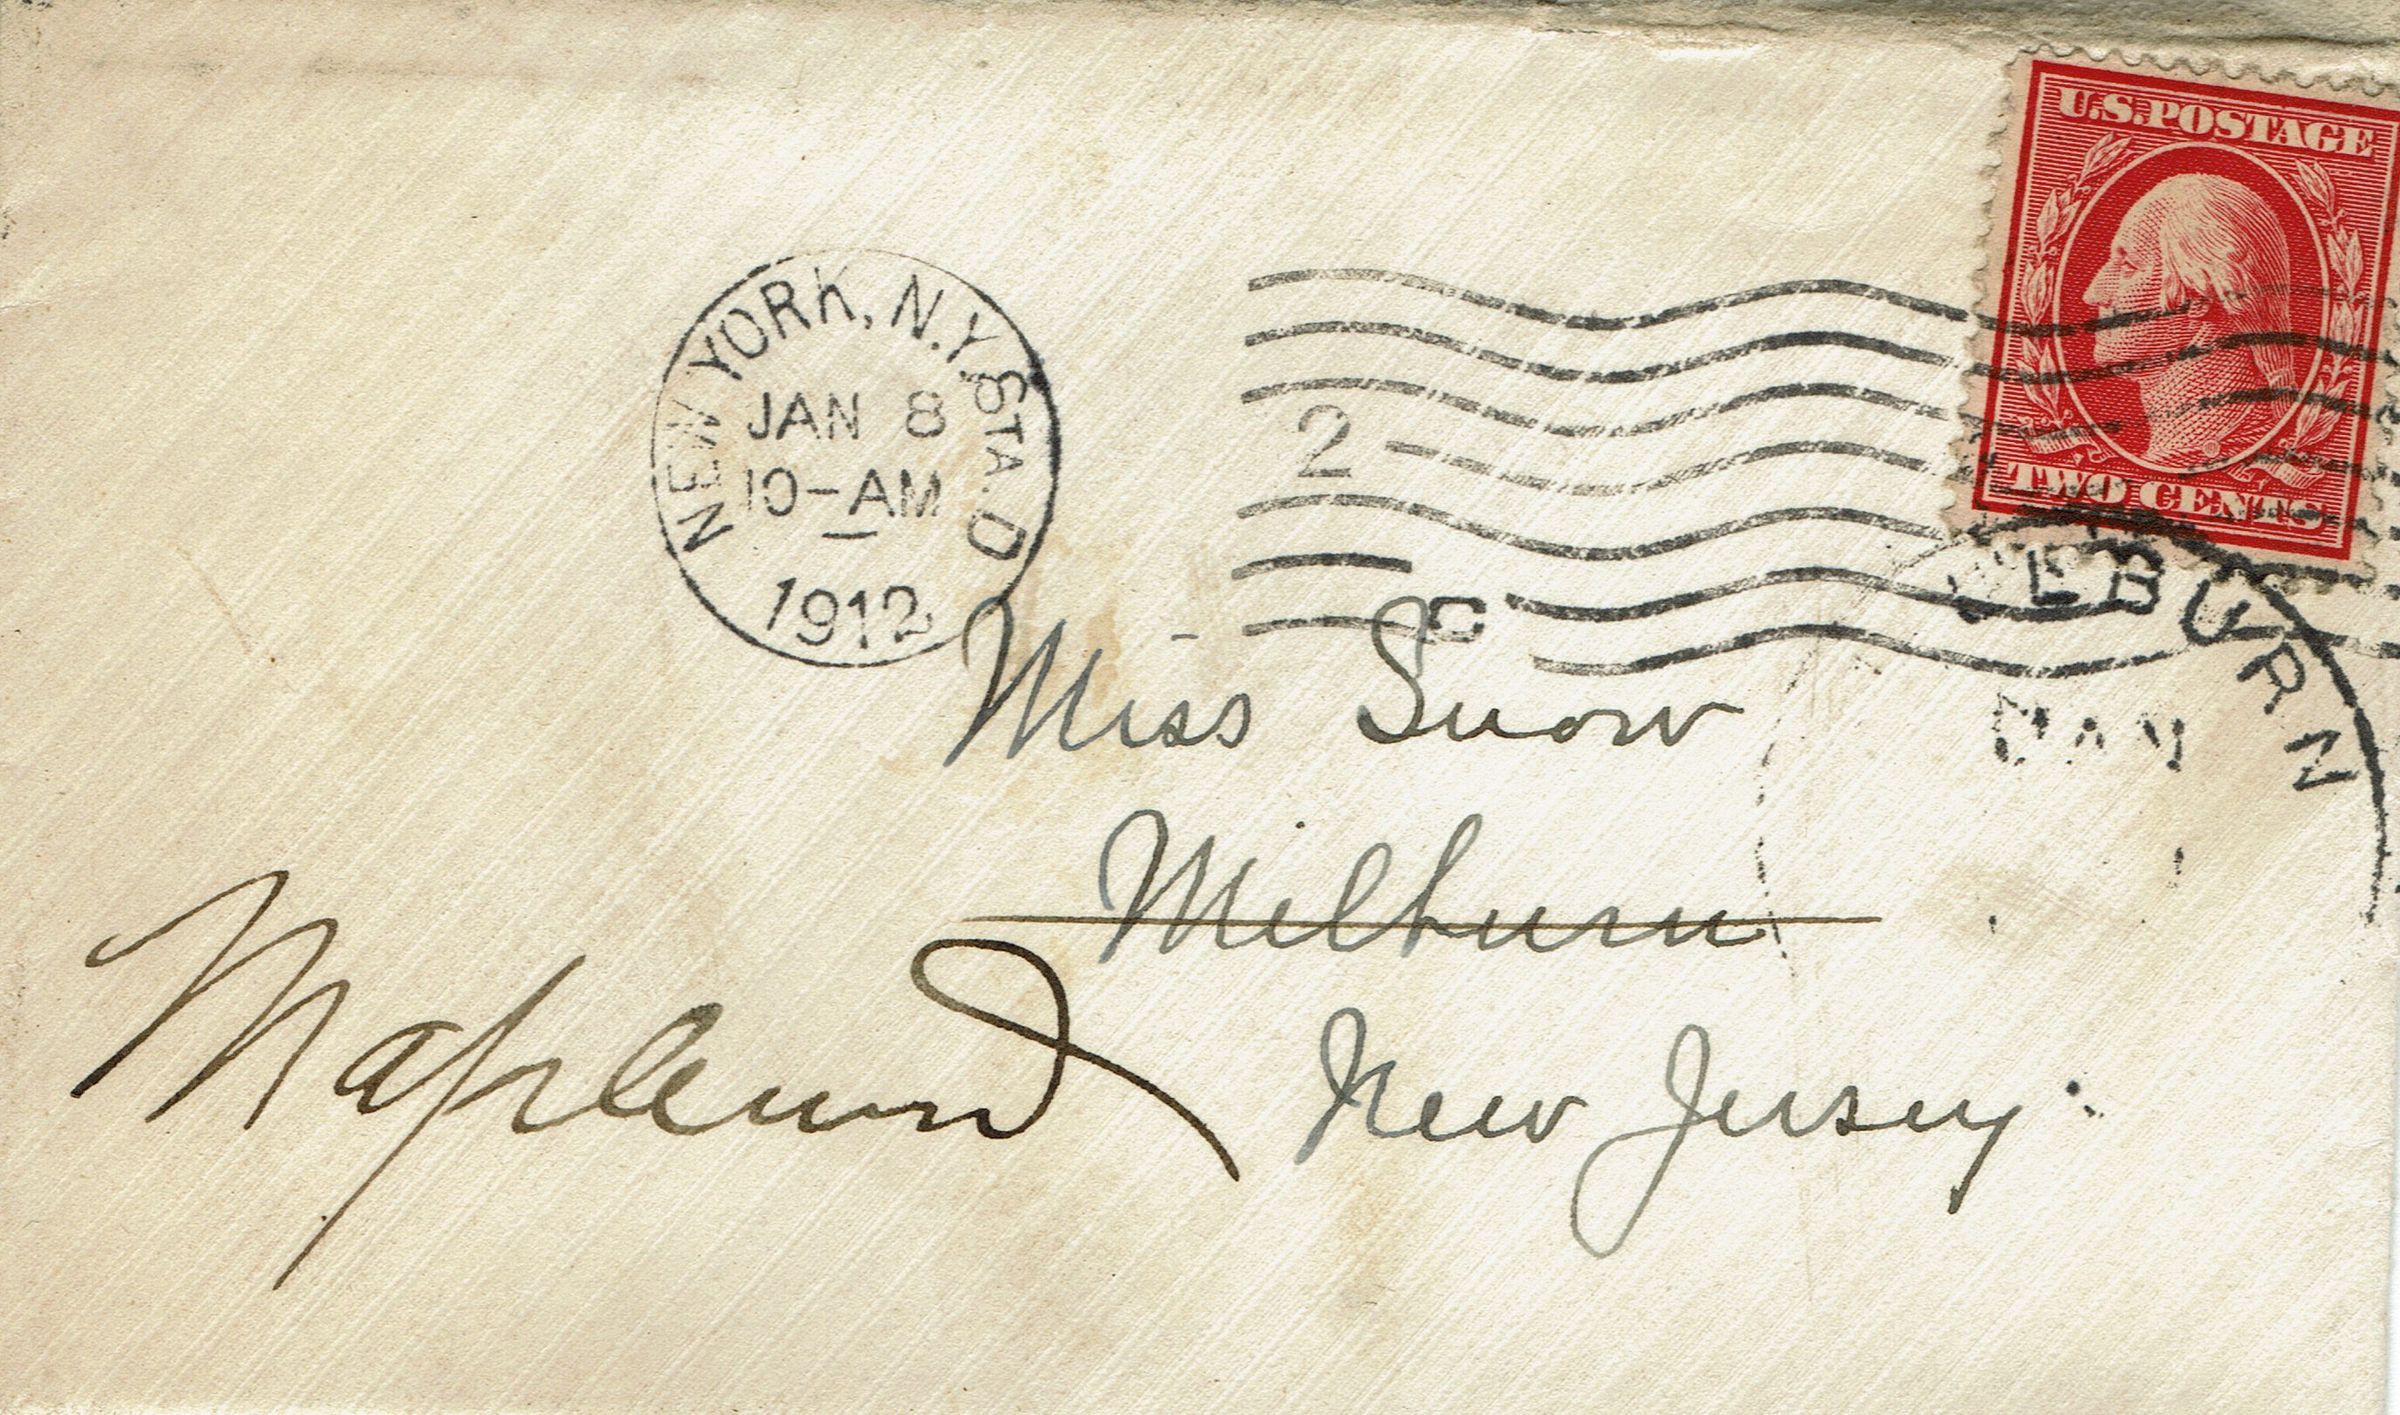 U.S. POSTAGE
TWO CENTS
NEW YORK, N.Y. STA. D
JAN 8
10-AM
1912
2
C
EBURN
Miss Snow
Milburn
New Jersey.
Maplewood